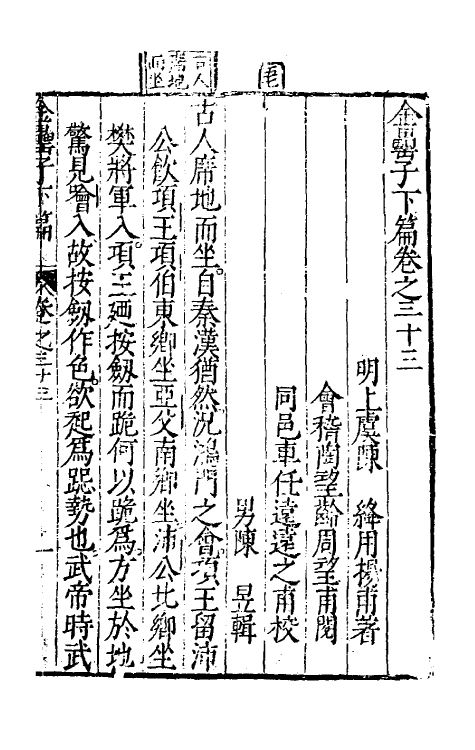 金罍子下篇卷之三十三
明上虞陳　絳用揚甫著
會稽陶望齡周望甫閱
同邑車任遠遠之甫校
男陳　昱輯
古人席地而坐
古人席地而坐自秦漢猶然況鴻門之會項王留沛
公飲項王項伯東鄉坐亞父南鄉坐沛公北鄉坐
樊將軍入項王廼按劔而跪何以跪爲方坐於地
驚見噲入故按劔作色欲起爲跽勢也武帝時武
金罍子下篇　卷之三十三　一